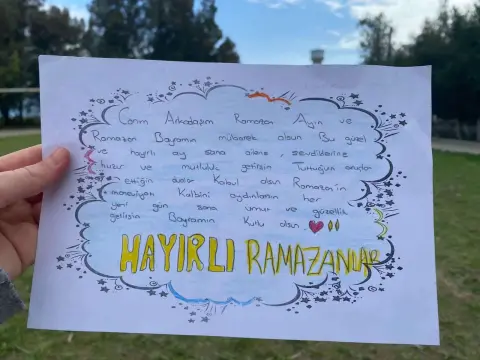 Canım Arkadaşım Ramazan Ayın ve
Ramazan Bayramın mübarek olsun Bu güzel
ve hayırlı ay sana ailene, sevdiklerine
huzur ve mutluluk getirsin Tuttuğun oruçlar
ettiğin dualar Kabul olsun Ramazan'ın
maneviyatı Kalbini aydınlatsın her
yeni gün sana umut ve güzellik
getirsin Bayramın Kutlu olsun.
HAYIRLI RAMAZANLAR